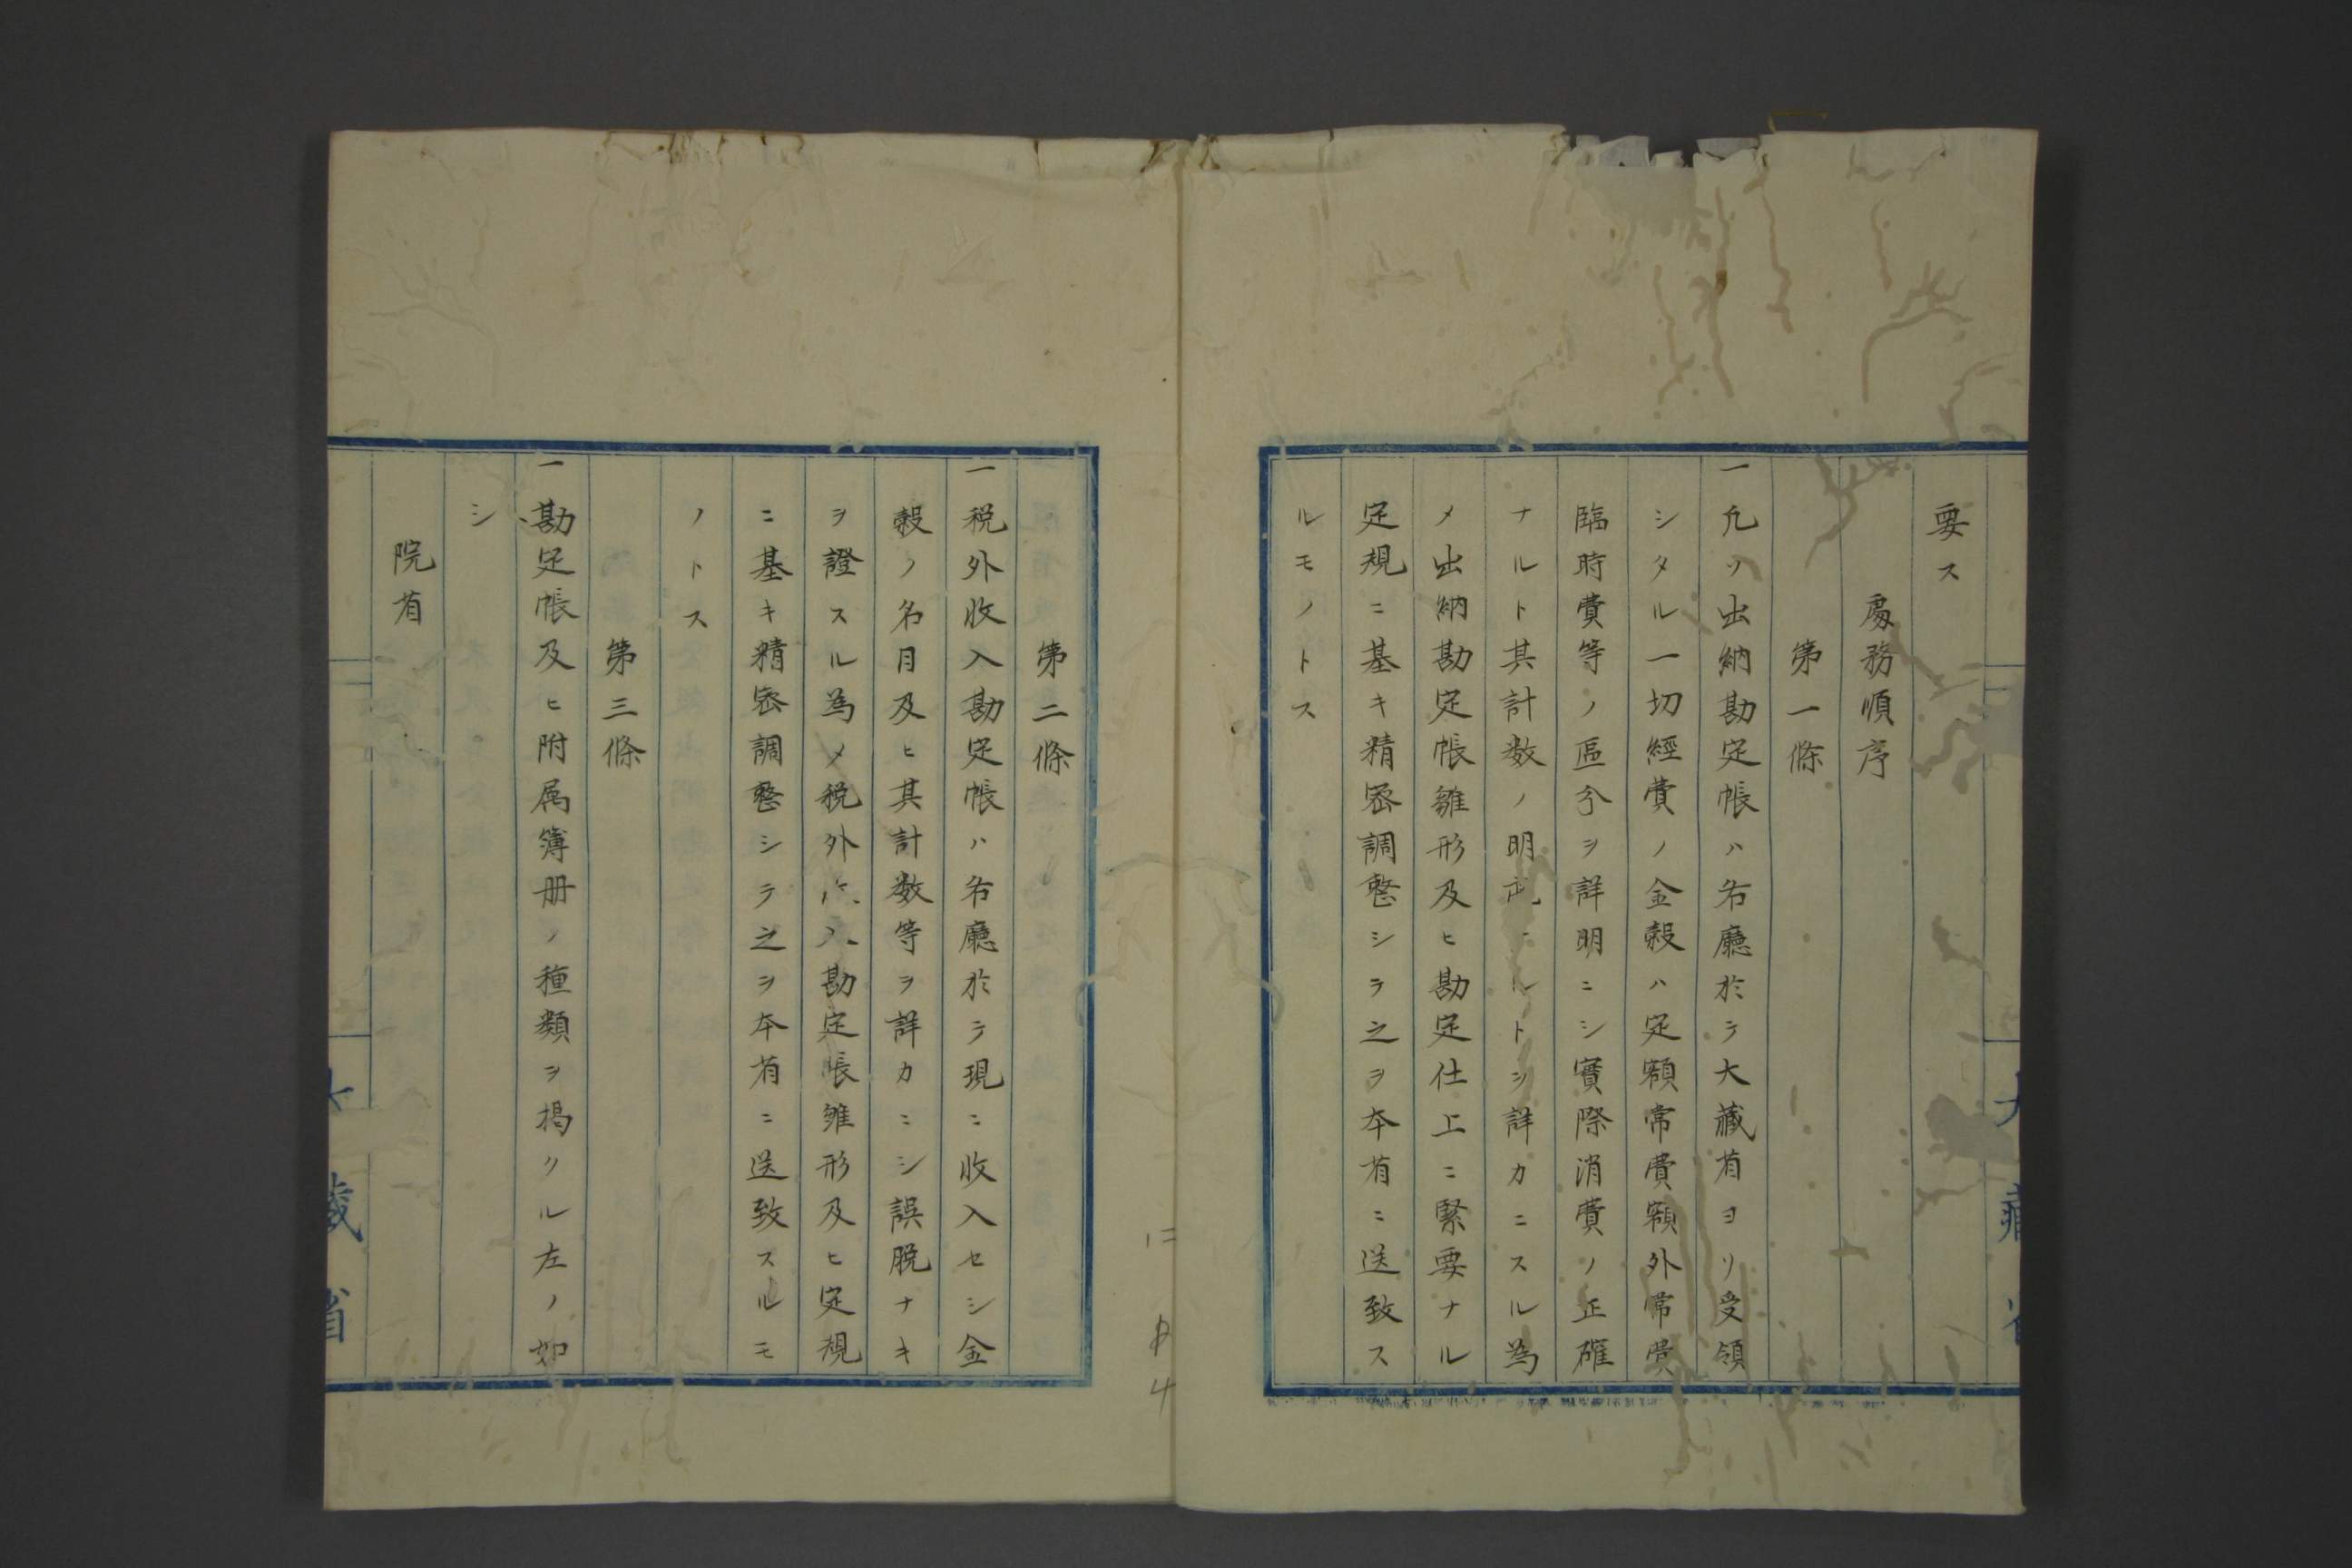 要ス
處務順序
第一條
一凡ソ出納勘定帳ハ各廳於テ大藏省ヨリ受領
シタル一切經費ノ金穀ハ定額常費額外常費
臨時費等ノ區分ヲ詳明ニシ實際消費ノ正確
ナルト其計数ノ明 ルトヲ詳カニスル為
メ出納勘定帳雛形及ヒ勘定仕上ニ緊要ナル
定規ニ基キ精密調整シテ之ヲ本省ニ送致ス
ルモノトス
第二條
一税外收入勘定帳ハ各廳於テ現ニ收入セシ金
穀ノ名目及ヒ其計数等ヲ詳カニシ誤脱ナキ
ヲ證スル為メ税外收入勘定帳雛形及ヒ定規
ニ基キ精密調整シテ之ヲ本省ニ送致スルモ
ノトス
第三條
一勘定帳及ヒ附属簿册ノ種類ヲ掲クル左ノ如
シ
院省
大藏省